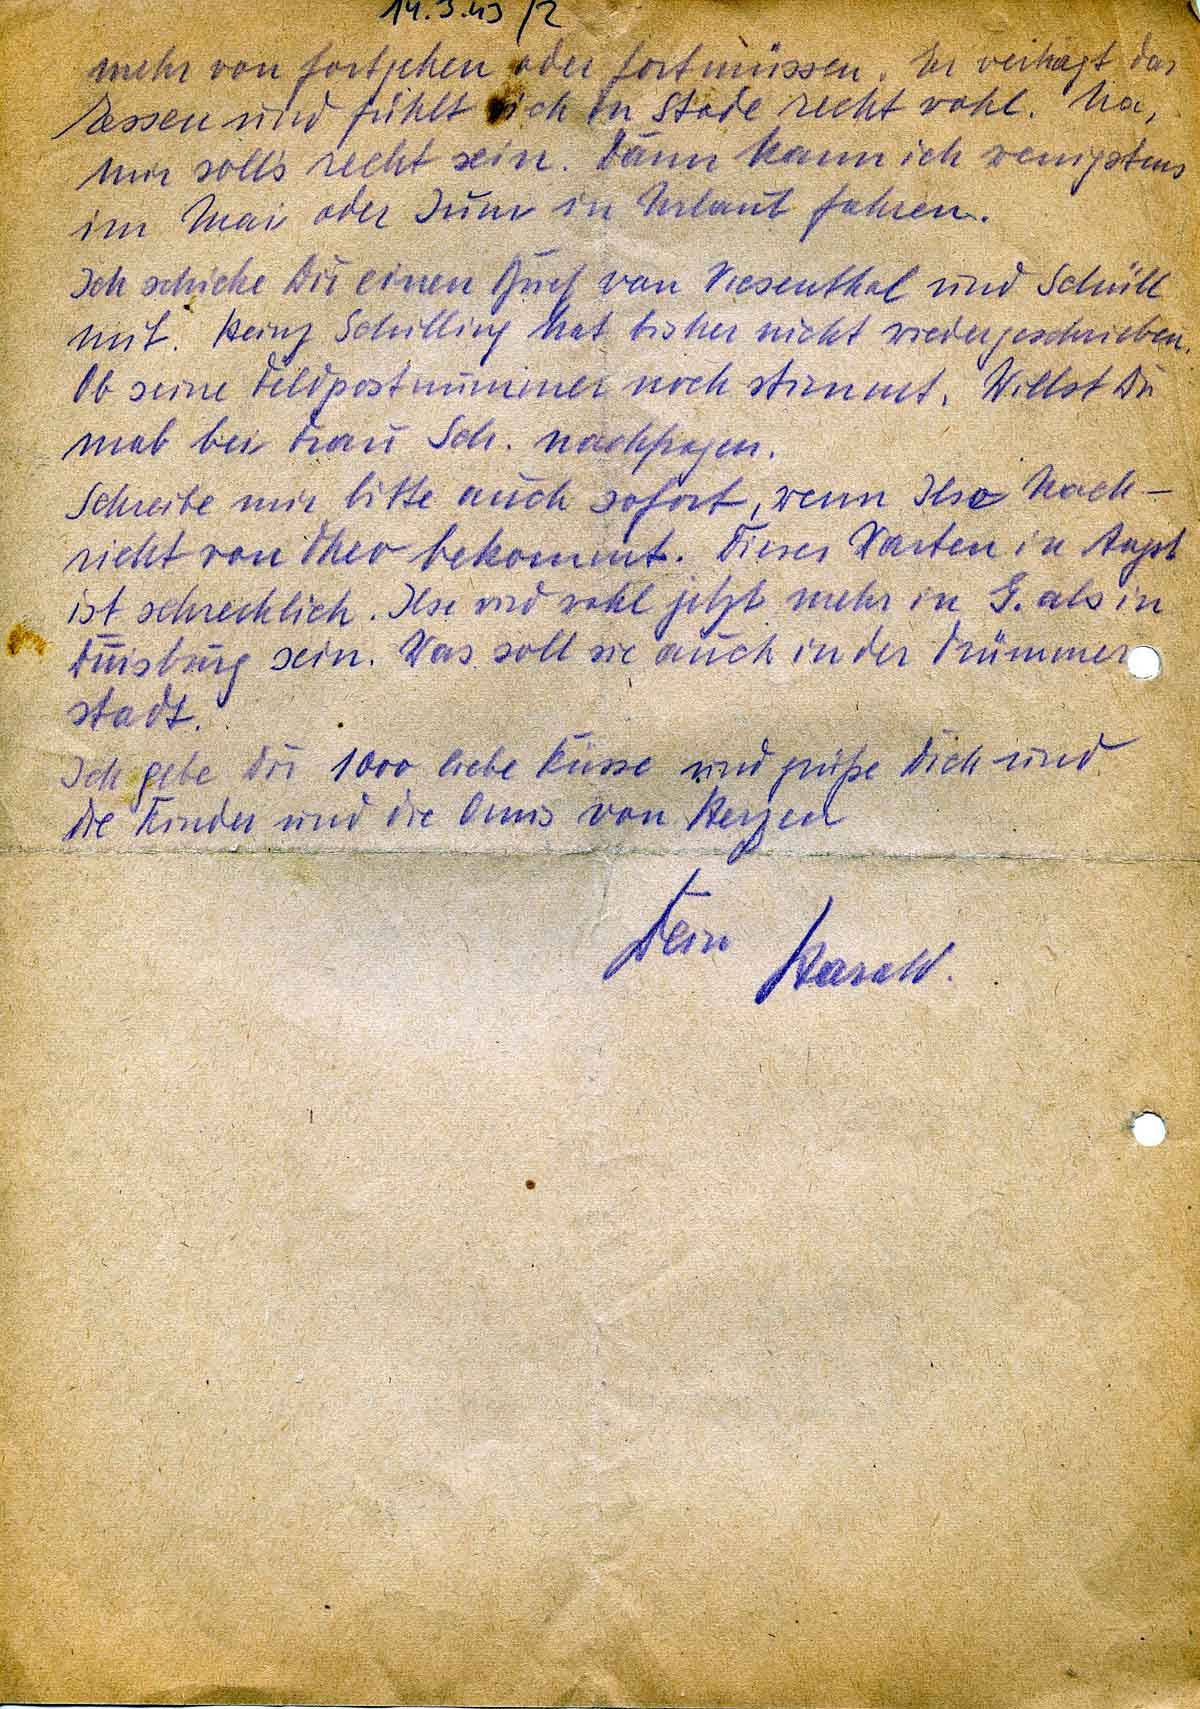 14.3.43 /2
mehr von fortgehen oder fortmüssen. Er verträgt das
Essen und fühlt sich in Stade recht wohl. Na,
mir solls recht sein. Dann kann ich wenigstens
im Mai oder Juni in Urlaub fahren.
Ich schicke Dir einen Brief von Wesenthal und Schüll
mit. Heinz Schilling hat bisher nicht wiedergeschrieben.
Ob seine Feldpostnummer noch stimmt. Willst Du
mal bei Frau Sch. nachfragen.
Schreibe mir bitte auch sofort, wenn Ilse Nach-
richt von Theo bekommt. Dieses Warten in Angst
ist schrecklich. Ilse wird wohl jetzt mehr in G. als in
Duisburg sein. Was soll sie auch in der Trümmer
stadt.
Ich gebe Dir 1000 liebe Küsse und grüße Dich und
die Kinder und die Omis von Herzen
Dein Harald.